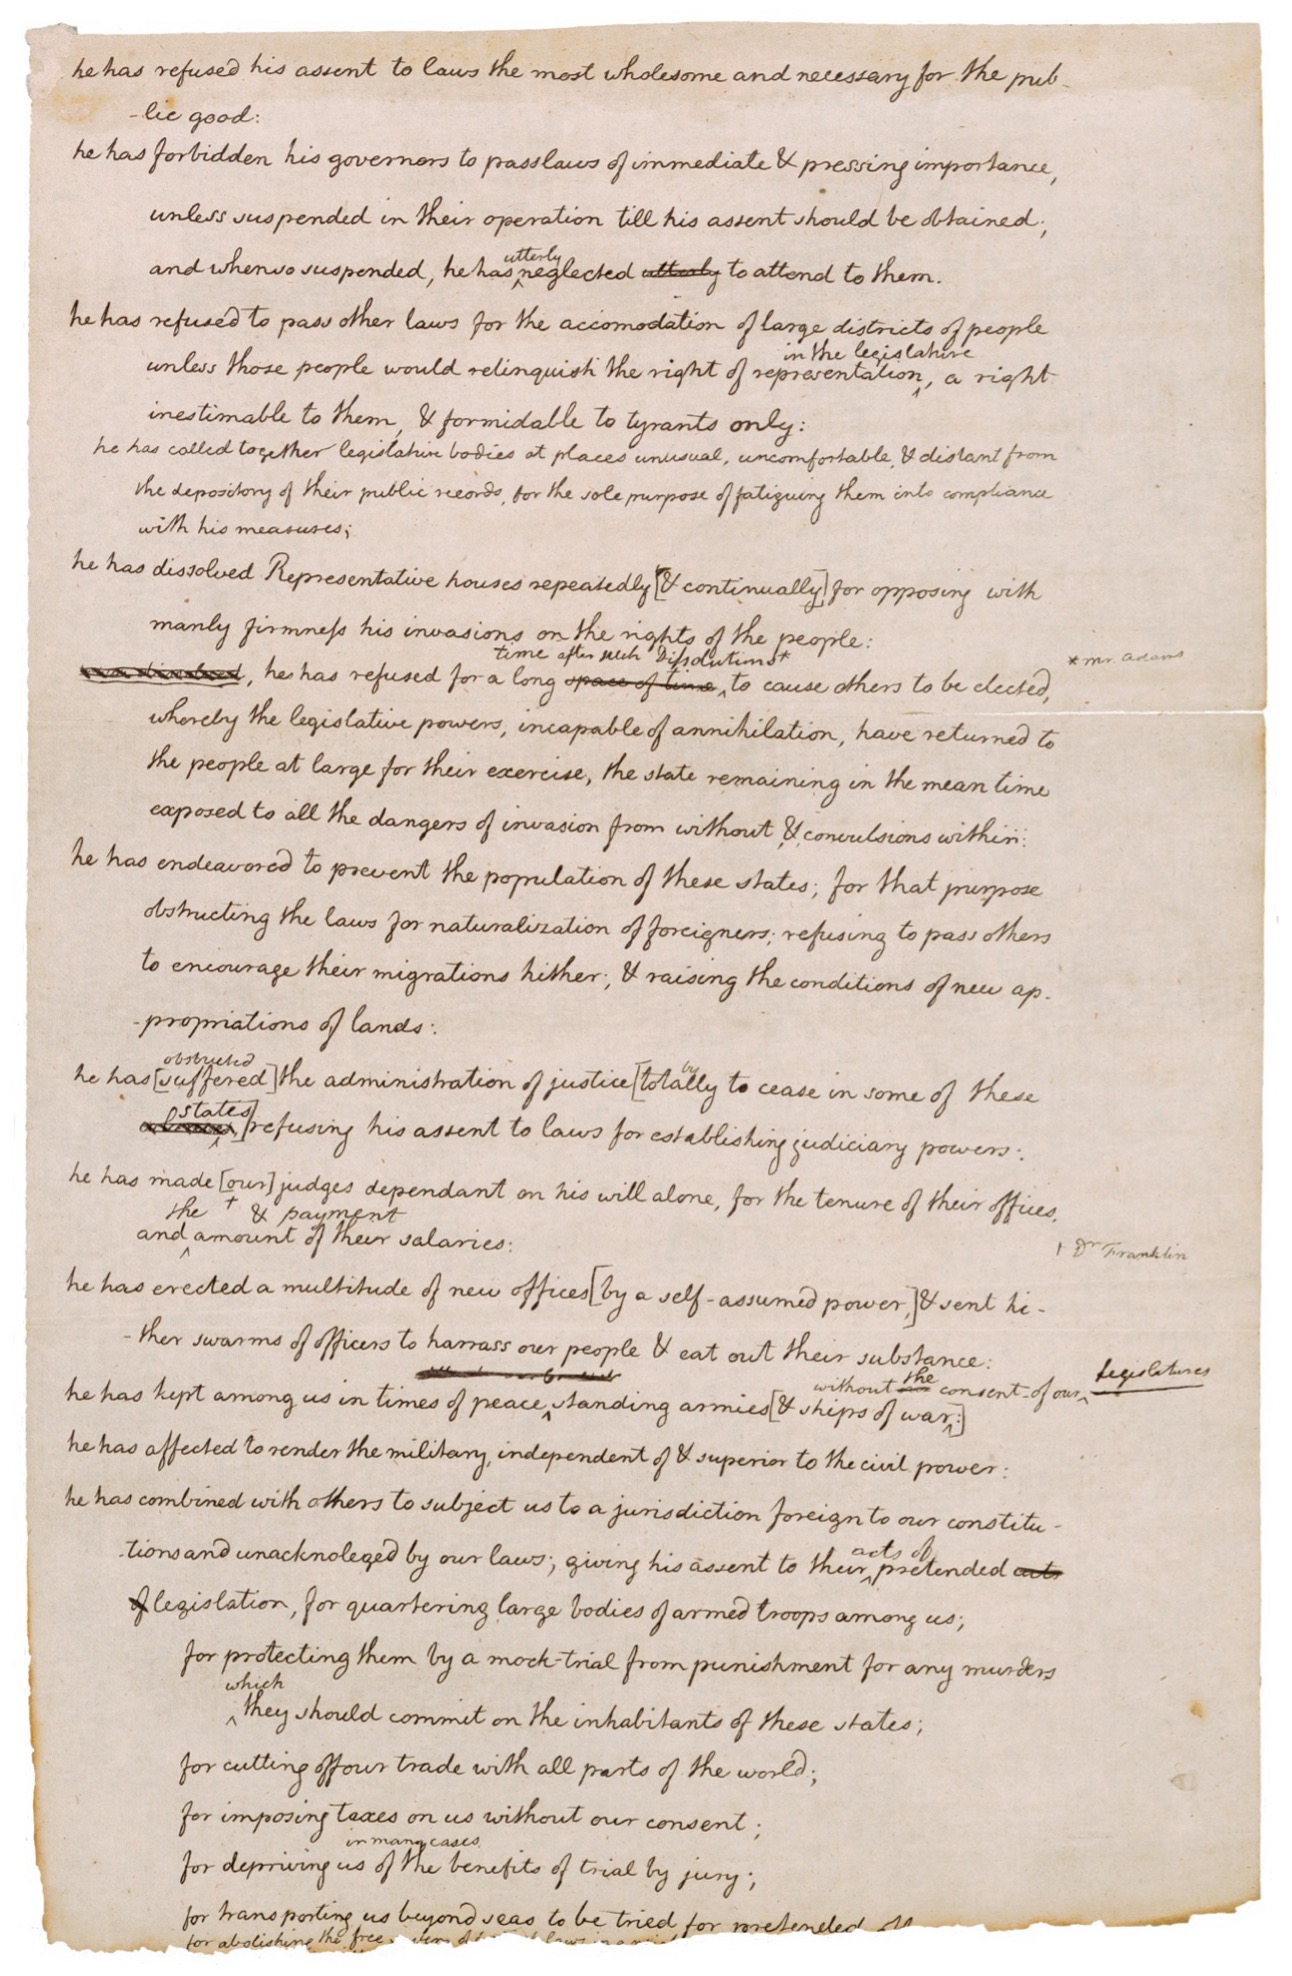 he has refused his assent to laws the most wholesome and necessary for the pub-
-lic good:
he has forbidden his governors to pass laws of immediate & pressing importance,
unless suspended in their operation till his assent should be obtained;
utterly
and when so suspended, he has neglected utterly to attend to them.
he has refused to pass other laws for the accomodation of large districts of people
in the legislature
unless those people would relinquish the right of representation, a right
inestimable to them, & formidable to tyrants only:
he has called together legislative bodies at places unusual, uncomfortable, & distant from
the depository of their public records, for the sole purpose of fatiguing them into compliance
with his measures;
he has dissolved Representative houses repeatedly [& continually] for opposing with
manly firmness his invasions on the rights of the people:
time after such Dissolutions* *mr. Adams
he has refused for a long space of time, to cause others to be elected,
whereby the legislative powers, incapable of annihilation, have returned to
the people at large for their exercise, the state remaining in the mean time
exposed to all the dangers of invasion from without & convulsions within:
he has endeavored to prevent the population of these states; for that purpose
obstructing the laws for naturalization of foreigners; refusing to pass others
to encourage their migrations hither; & raising the conditions of new ap-
-propriations of lands:
obstructed by
he has [suffered] the administration of justice [totally to cease in some of these
states
] refusing his assent to laws for establishing judiciary powers:
he has made [our] judges dependant on his will alone, for the tenure of their offices,
the † & payment
and amount of their salaries:
† Dr Franklin
he has erected a multitude of new offices [by a self-assumed power,] & sent hi-
-ther swarms of officers to harrass our people & eat out their substance:
without the consent of our legislatures
he has kept among us in times of peace standing armies [& ships of war:]
he has affected to render the military, independent of & superior to the civil power:
he has combined with others to subject us to a jurisdiction foreign to our constitu-
acts of
-tions and unacknoleged by our laws; giving his assent to their pretended acts
of legislation, for quartering large bodies of armed troops among us;
for protecting them by a mock-trial from punishment for any murders
which
they should commit on the inhabitants of these states;
for cutting off our trade with all parts of the world;
for imposing taxes on us without our consent;
in many cases
for depriving us of the benefits of trial by jury;
for transporting us beyond seas to be tried for pretended
for abolishing the free